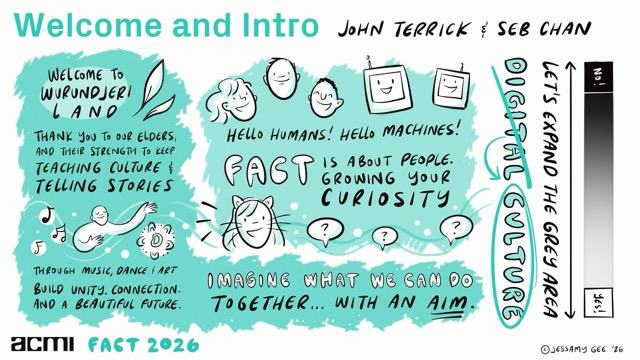 Welcome and Intro JOHN TERRICK & SEB CHAN
WELCOME TO
WURUNDJERI
LAND
THANK YOU TO OUR ELDERS,
AND THEIR STRENGTH TO KEEP
TEACHING CULTURE &
TELLING STORIES
THROUGH MUSIC, DANCE & ART
BUILD UNITY. CONNECTION.
AND A BEAUTIFUL FUTURE.
HELLO HUMANS! HELLO MACHINES!
FACT IS ABOUT PEOPLE.
GROWING YOUR
CURIOSITY
? ? ?
IMAGINE WHAT WE CAN DO
TOGETHER... WITH AN AIM.
DIGITAL CULTURE
LET'S EXPAND THE GREY AREA
NO!
YES!
acmi FACT 2026
©JESSAMY GEE '26